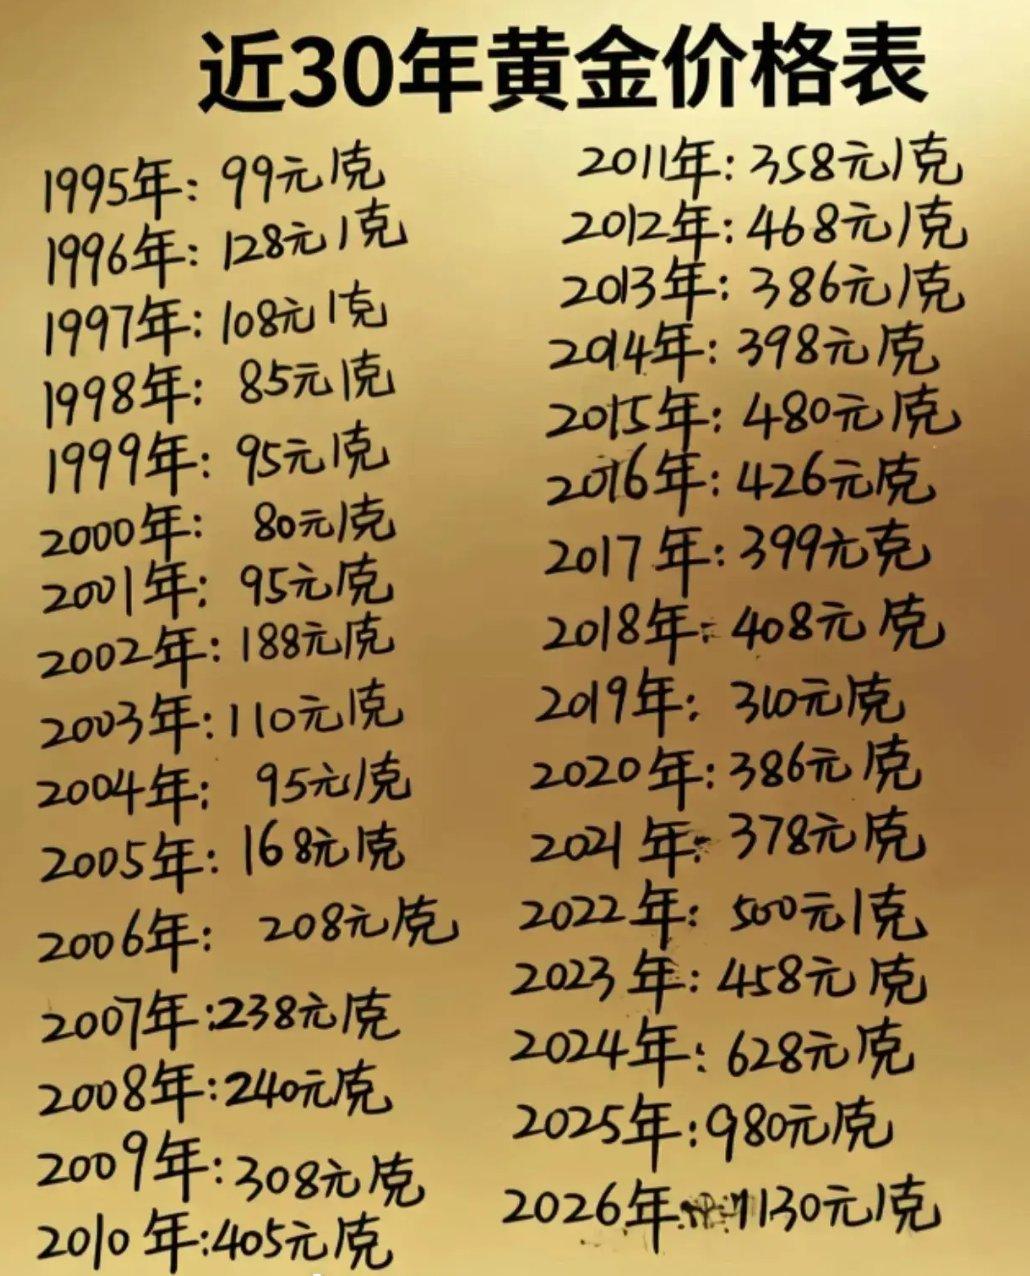 近30年黄金价格表
1995年: 99元/克
1996年: 128元/克
1997年: 108元/克
1998年: 85元/克
1999年: 95元/克
2000年: 80元/克
2001年: 95元/克
2002年: 188元/克
2003年: 110元/克
2004年: 95元/克
2005年: 168元/克
2006年: 208元/克
2007年: 238元/克
2008年: 240元/克
2009年: 308元/克
2010年: 405元/克
2011年: 358元/克
2012年: 468元/克
2013年: 386元/克
2014年: 398元/克
2015年: 480元/克
2016年: 426元/克
2017年: 399元克
2018年: 408元/克
2019年: 310元/克
2020年: 386元/克
2021年: 378元/克
2022年: 500元/克
2023年: 458元/克
2024年: 628元/克
2025年: 980元/克
2026年: 1130元/克